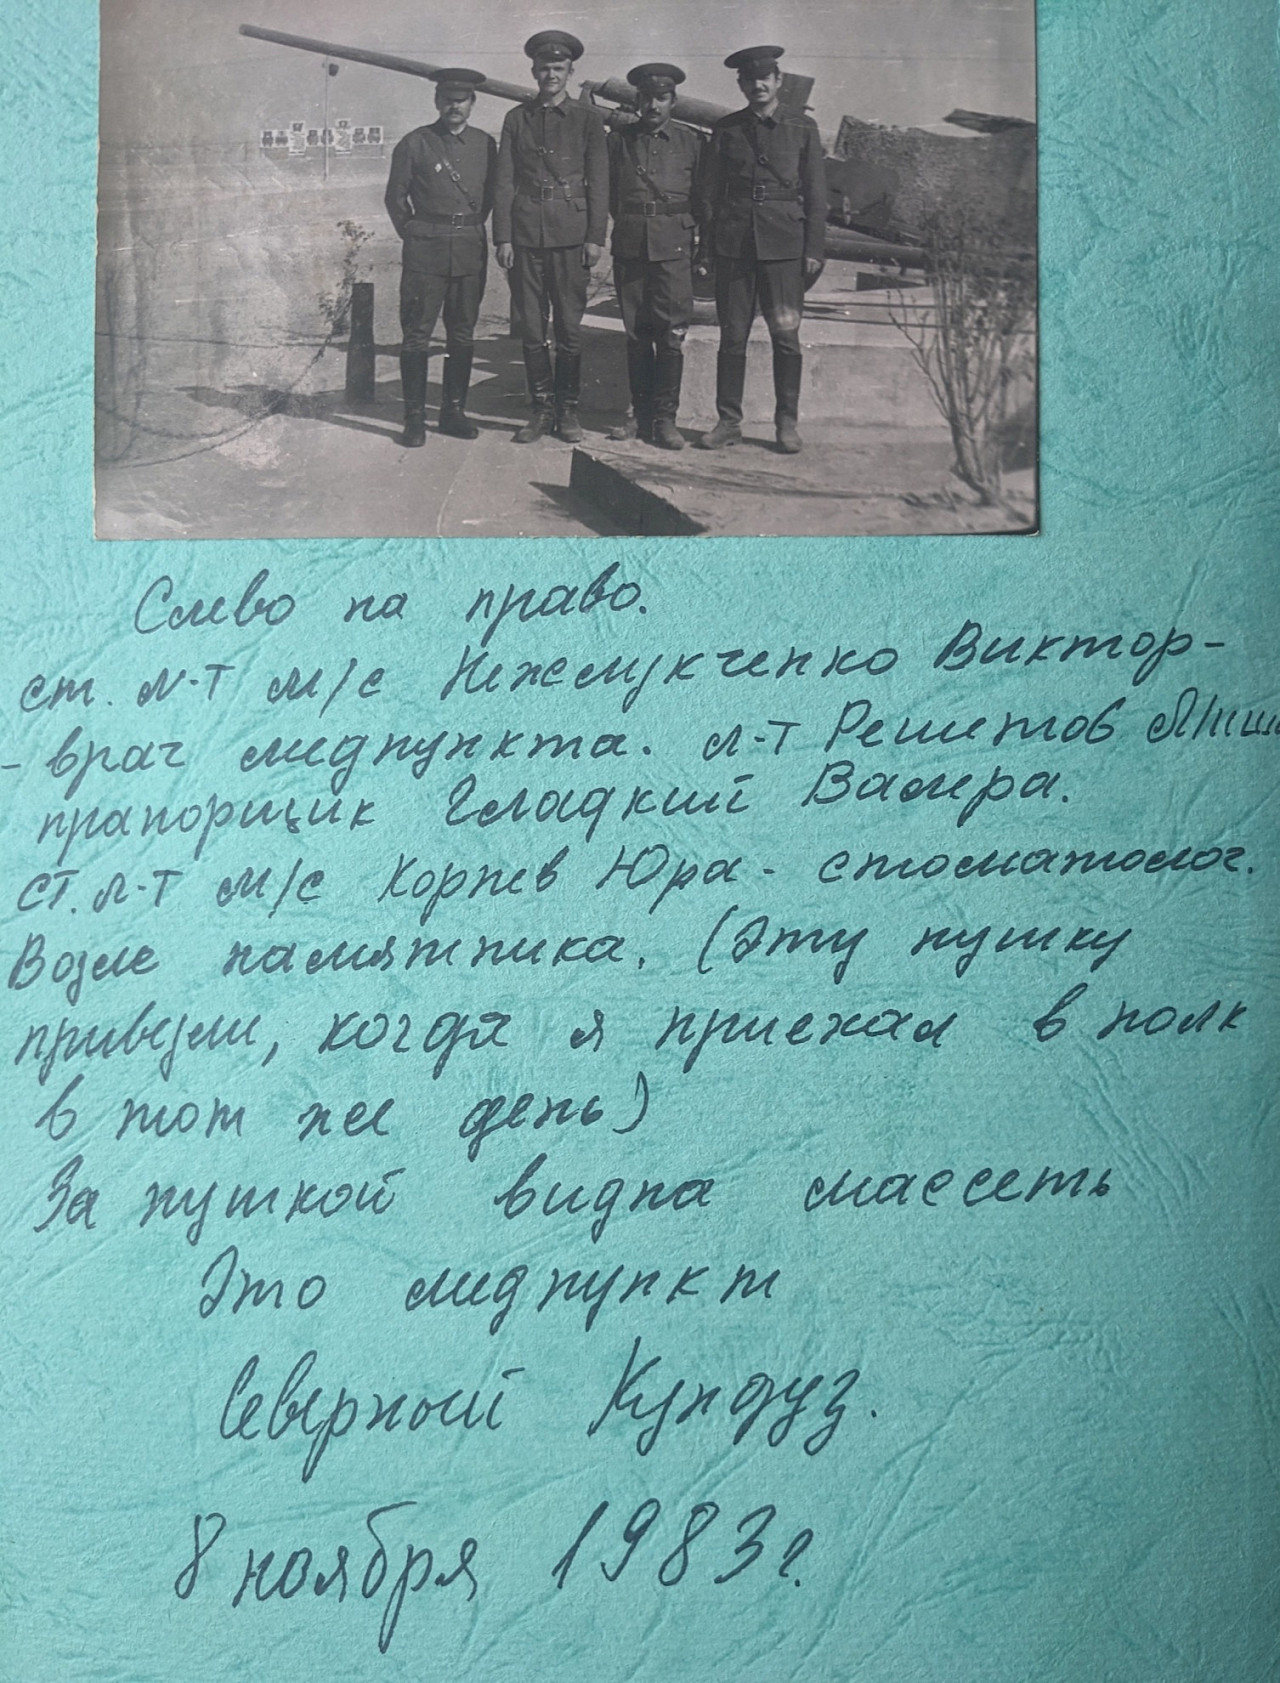 Слево на право.
ст. л-т м/с Нежмукченко Виктор-
- врач медпункта. л-т Решетов
прапорщик Гладкий Валера.
ст. л-т м/с Коржев Юра - стоматолог.
Возле памятника. (Эту пушку
привезли, когда я приехал в полк
в тот же день)
За пушкой видна массеть
Это медпункт
Северный Кундуз.
8 ноября 1983 г.